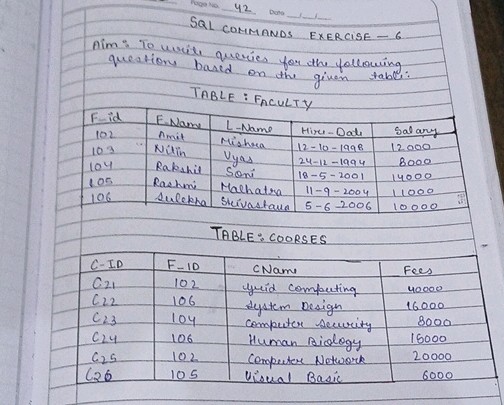 Page No. 42 Date
SQL COMMANDS EXERCISE - 6
Aim: To write queries for the following
questions based on the given table:
TABLE: FACULTY
F_id F_Name L_Name Hire-Date Salary
102 Amit Mishra 12-10-1998 12000
103 Nitin Vyas 24-12-1994 8000
104 Rakshit Soni 18-5-2001 14000
105 Rashmi Malhotra 11-9-2004 11000
106 Sulekha Srivastava 5-6-2006 10000
TABLE: COORSES
C-ID F_ID CName Fees
C21 102 Grid Computing 40000
C22 106 System Design 16000
C23 104 Computer Security 8000
C24 106 Human Biology 15000
C25 102 Computer Network 20000
C26 105 Visual Basic 6000